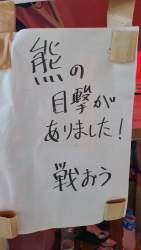 熊の
目撃が
ありました!
戦おう